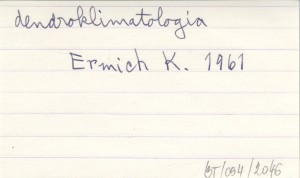 dendroklimatologia
Ermich K. 1961
BT/094/2046